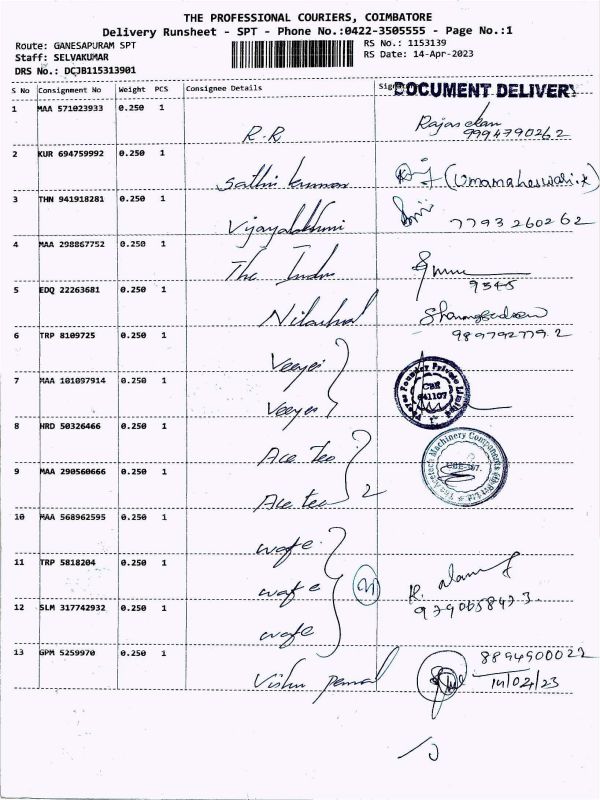 THE PROFESSIONAL COURIERS, COIMBATORE
Delivery Runsheet - SPT - Phone No.:0422-3505555 - Page No.:1
Route: GANESAPURAM SPT
RS No.: 1153139
Staff: SELVAKUMAR
RS Date: 14-Apr-2023
DRS No.: DCJB115313901
S No Consignment No Weight PCS Consignee Details
DOCUMENT DELIVERY
1 MAA 571023933 0.250 1
R.R
9994790262
2 KUR 694759992 0.250 1
Sathi kumar
(Umamaheswari.K)
3 THN 941918281 0.250 1
Vijayalakhmi
7793260262
4 MAA 298867752 0.250 1
The
9345
5 EDQ 22263681 0.250 1
6 TRP 8109725 0.250 1
Veeyes
7 MAA 101097914 0.250 1
Veeyes
Foundry Private Limited
CBE
641107
8 HRD 50326466 0.250 1
Ace Tec
Machinery Components (P) Pvt Ltd
9 MAA 290560666 0.250 1
Ace tec
2
10 MAA 568962595 0.250 1
wafe
11 TRP 5818204 0.250 1
wafe
12 SLM 317742932 0.250 1
wafe
13 GPM 5259970 0.250 1
Vishnu
14/04/23